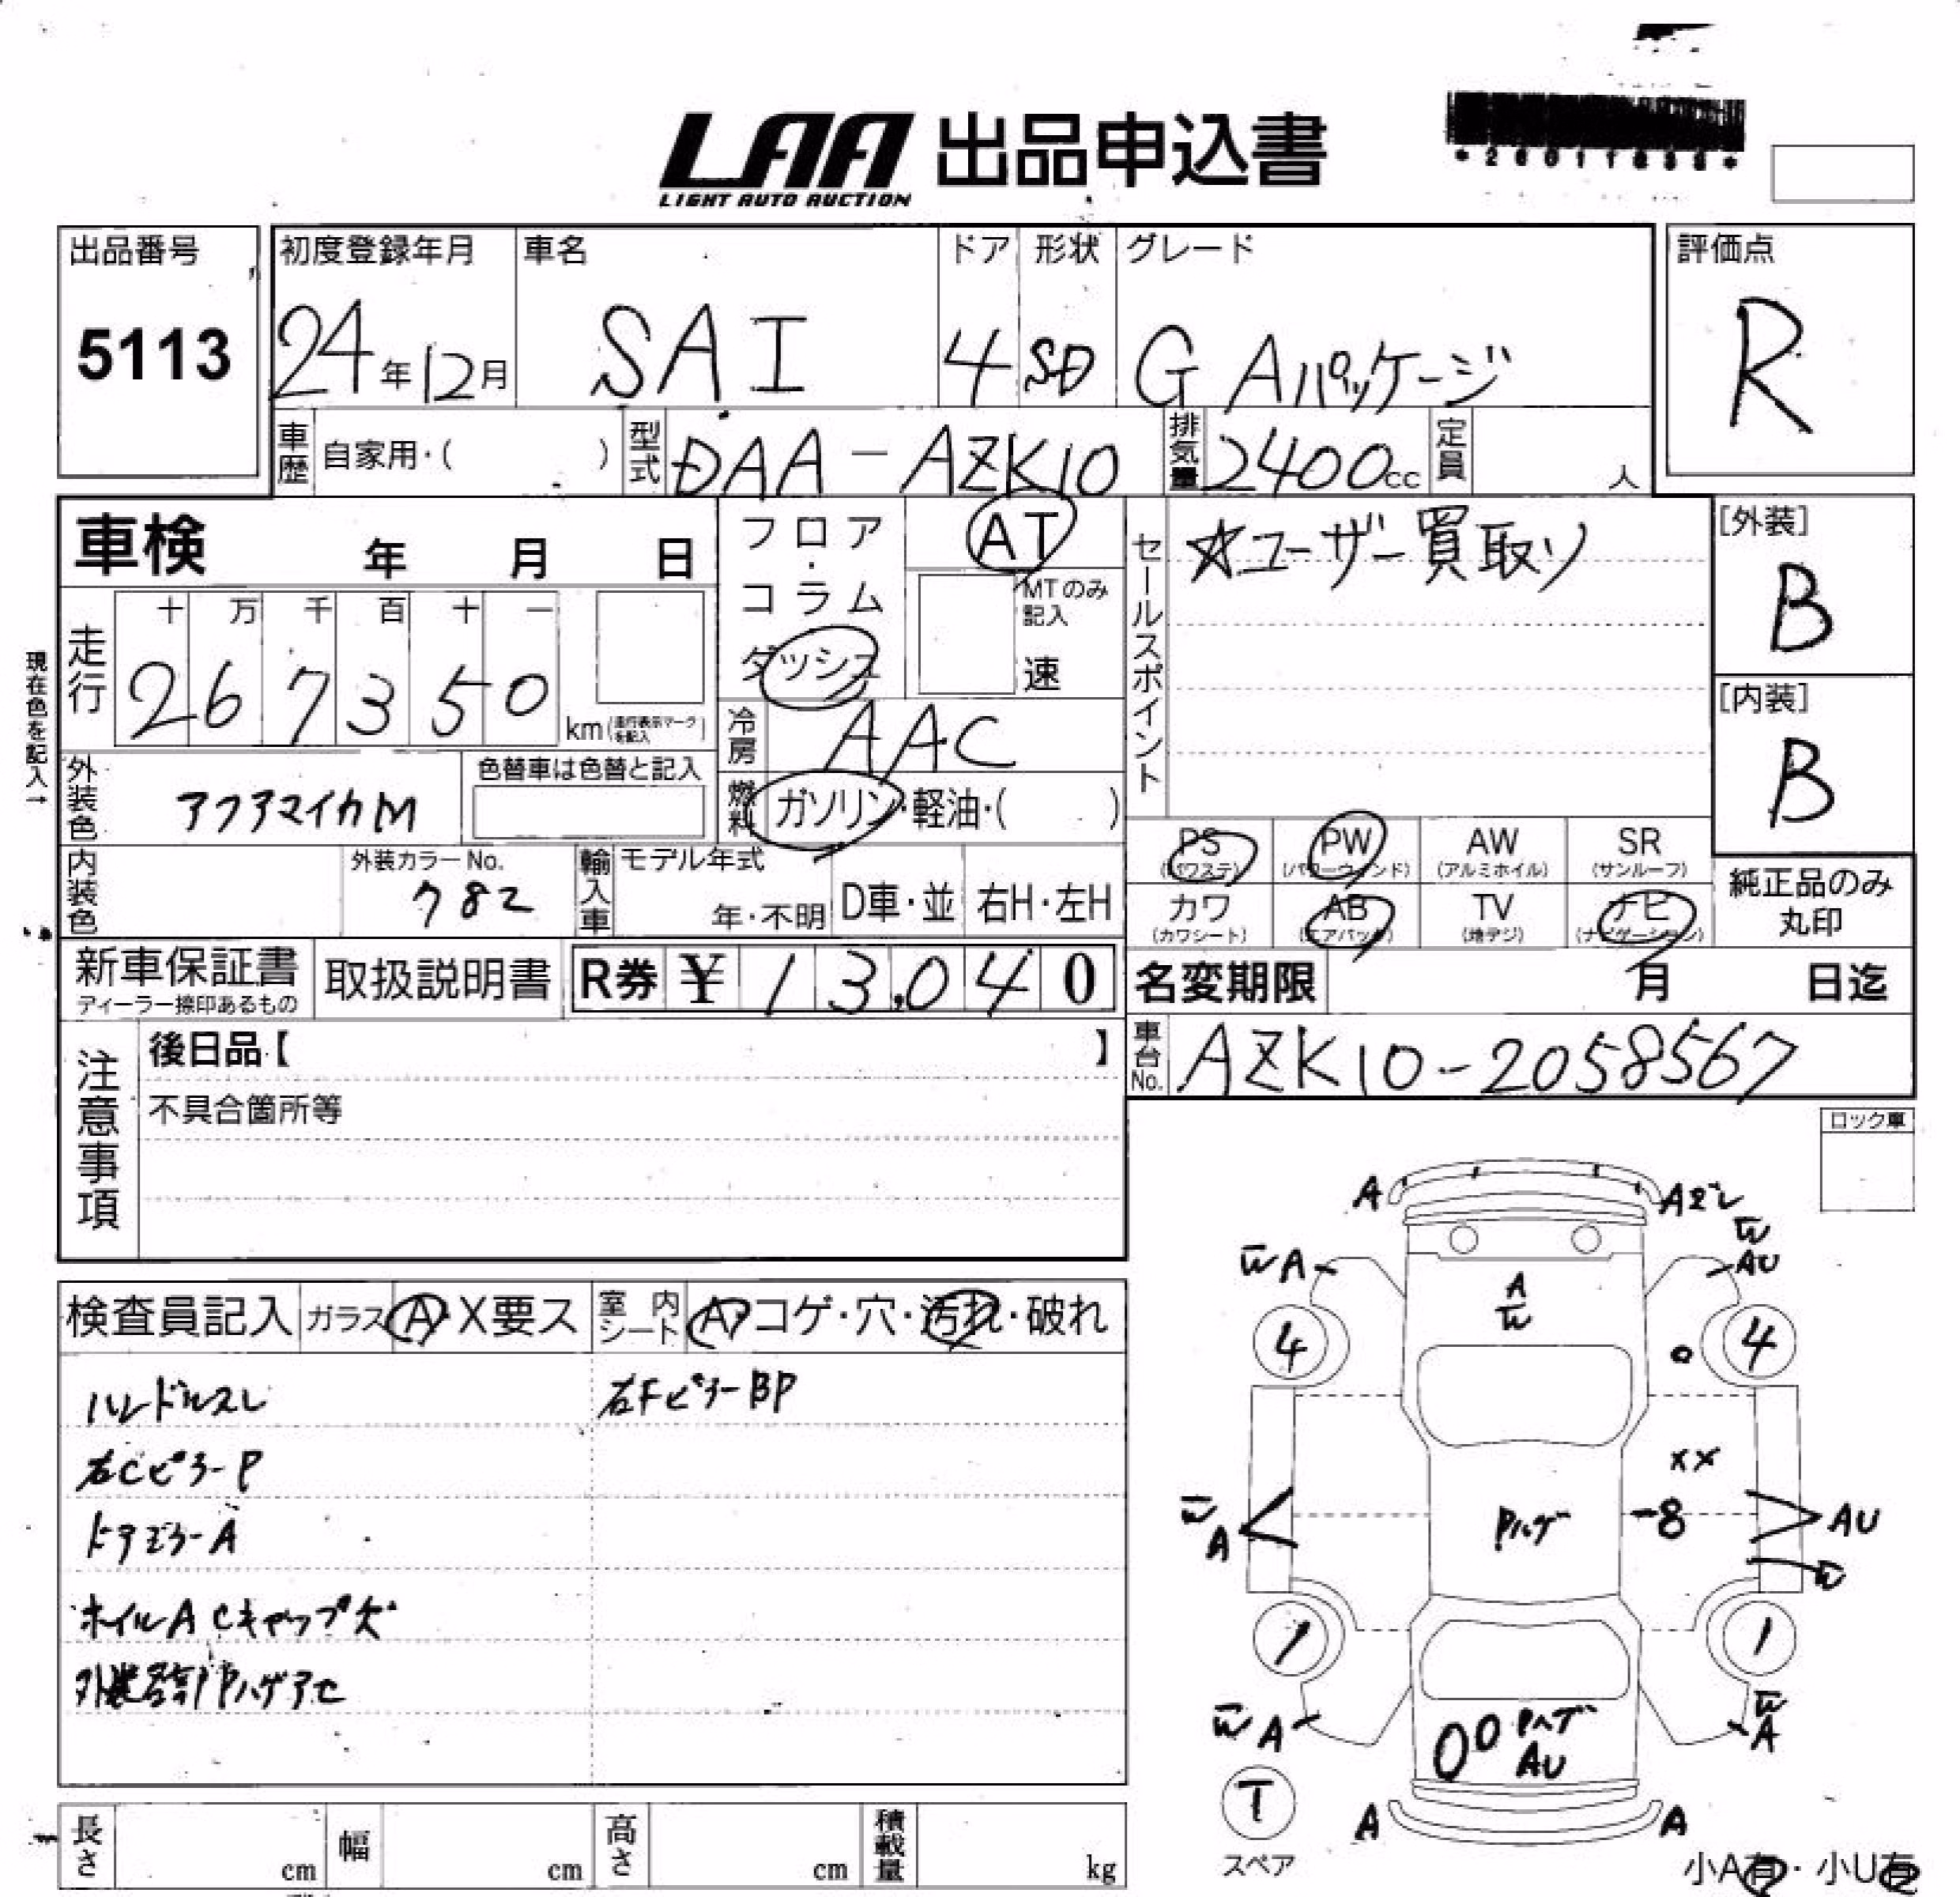 LAA 出品申込書
LIGHT AUTO AUCTION
出品番号
5113
初度登録年月
24年12月
車名
SAI
ドア
4
形状
SD
グレード
G Aパッケージ
評価点
R
車歴 自家用・( )
型式 DAA-AZK10
排気量 2400cc
定員 人
車検 年 月 日
フロア・コラム
ダッシュ
AT
MTのみ記入
速
セールスポイント
☆ユーザー買取り
[外装]
B
[内装]
B
現在色を記入→
走行
十 万 千 百 十 一
2 6 7 3 5 0
km(走行表示マークを記入)
冷房 AAC
外装色 アクアマイカM
色替車は色替と記入
燃料 ガソリン・軽油・( )
内装色
外装カラーNo.
782
輸入車
モデル年式
年・不明
D車・並
右H・左H
PS (パワステ)
PW (パワーウィンド)
AW (アルミホイル)
SR (サンルーフ)
カワ (カワシート)
AB (エアバッグ)
TV (地デジ)
ナビ (ナビゲーション)
純正品のみ
丸印
新車保証書
ディーラー捺印あるもの
取扱説明書
R券 ¥ 13,040
名変期限 月 日迄
車台No. AZK10-2058567
注意事項
後日品【 】
不具合箇所等
ロック車
検査員記入
ガラス A・X要ス
室内シート A・コゲ・穴・汚れ・破れ
ハンドルスレ
右FピラーBP
右CピラーP
ドアミラーA
ホイルA Cキャップ欠
外装各部Pハゲアセ
A
Aズレ
W A
W
AU
A
W
4
4
XX
W
A
Pハゲ
-8
AU
W
1
1
W A
Pハゲ
AU
W
A
T
スペア
A
A
小A有・小U有
長さ cm
幅 cm
高さ cm
積載量 kg